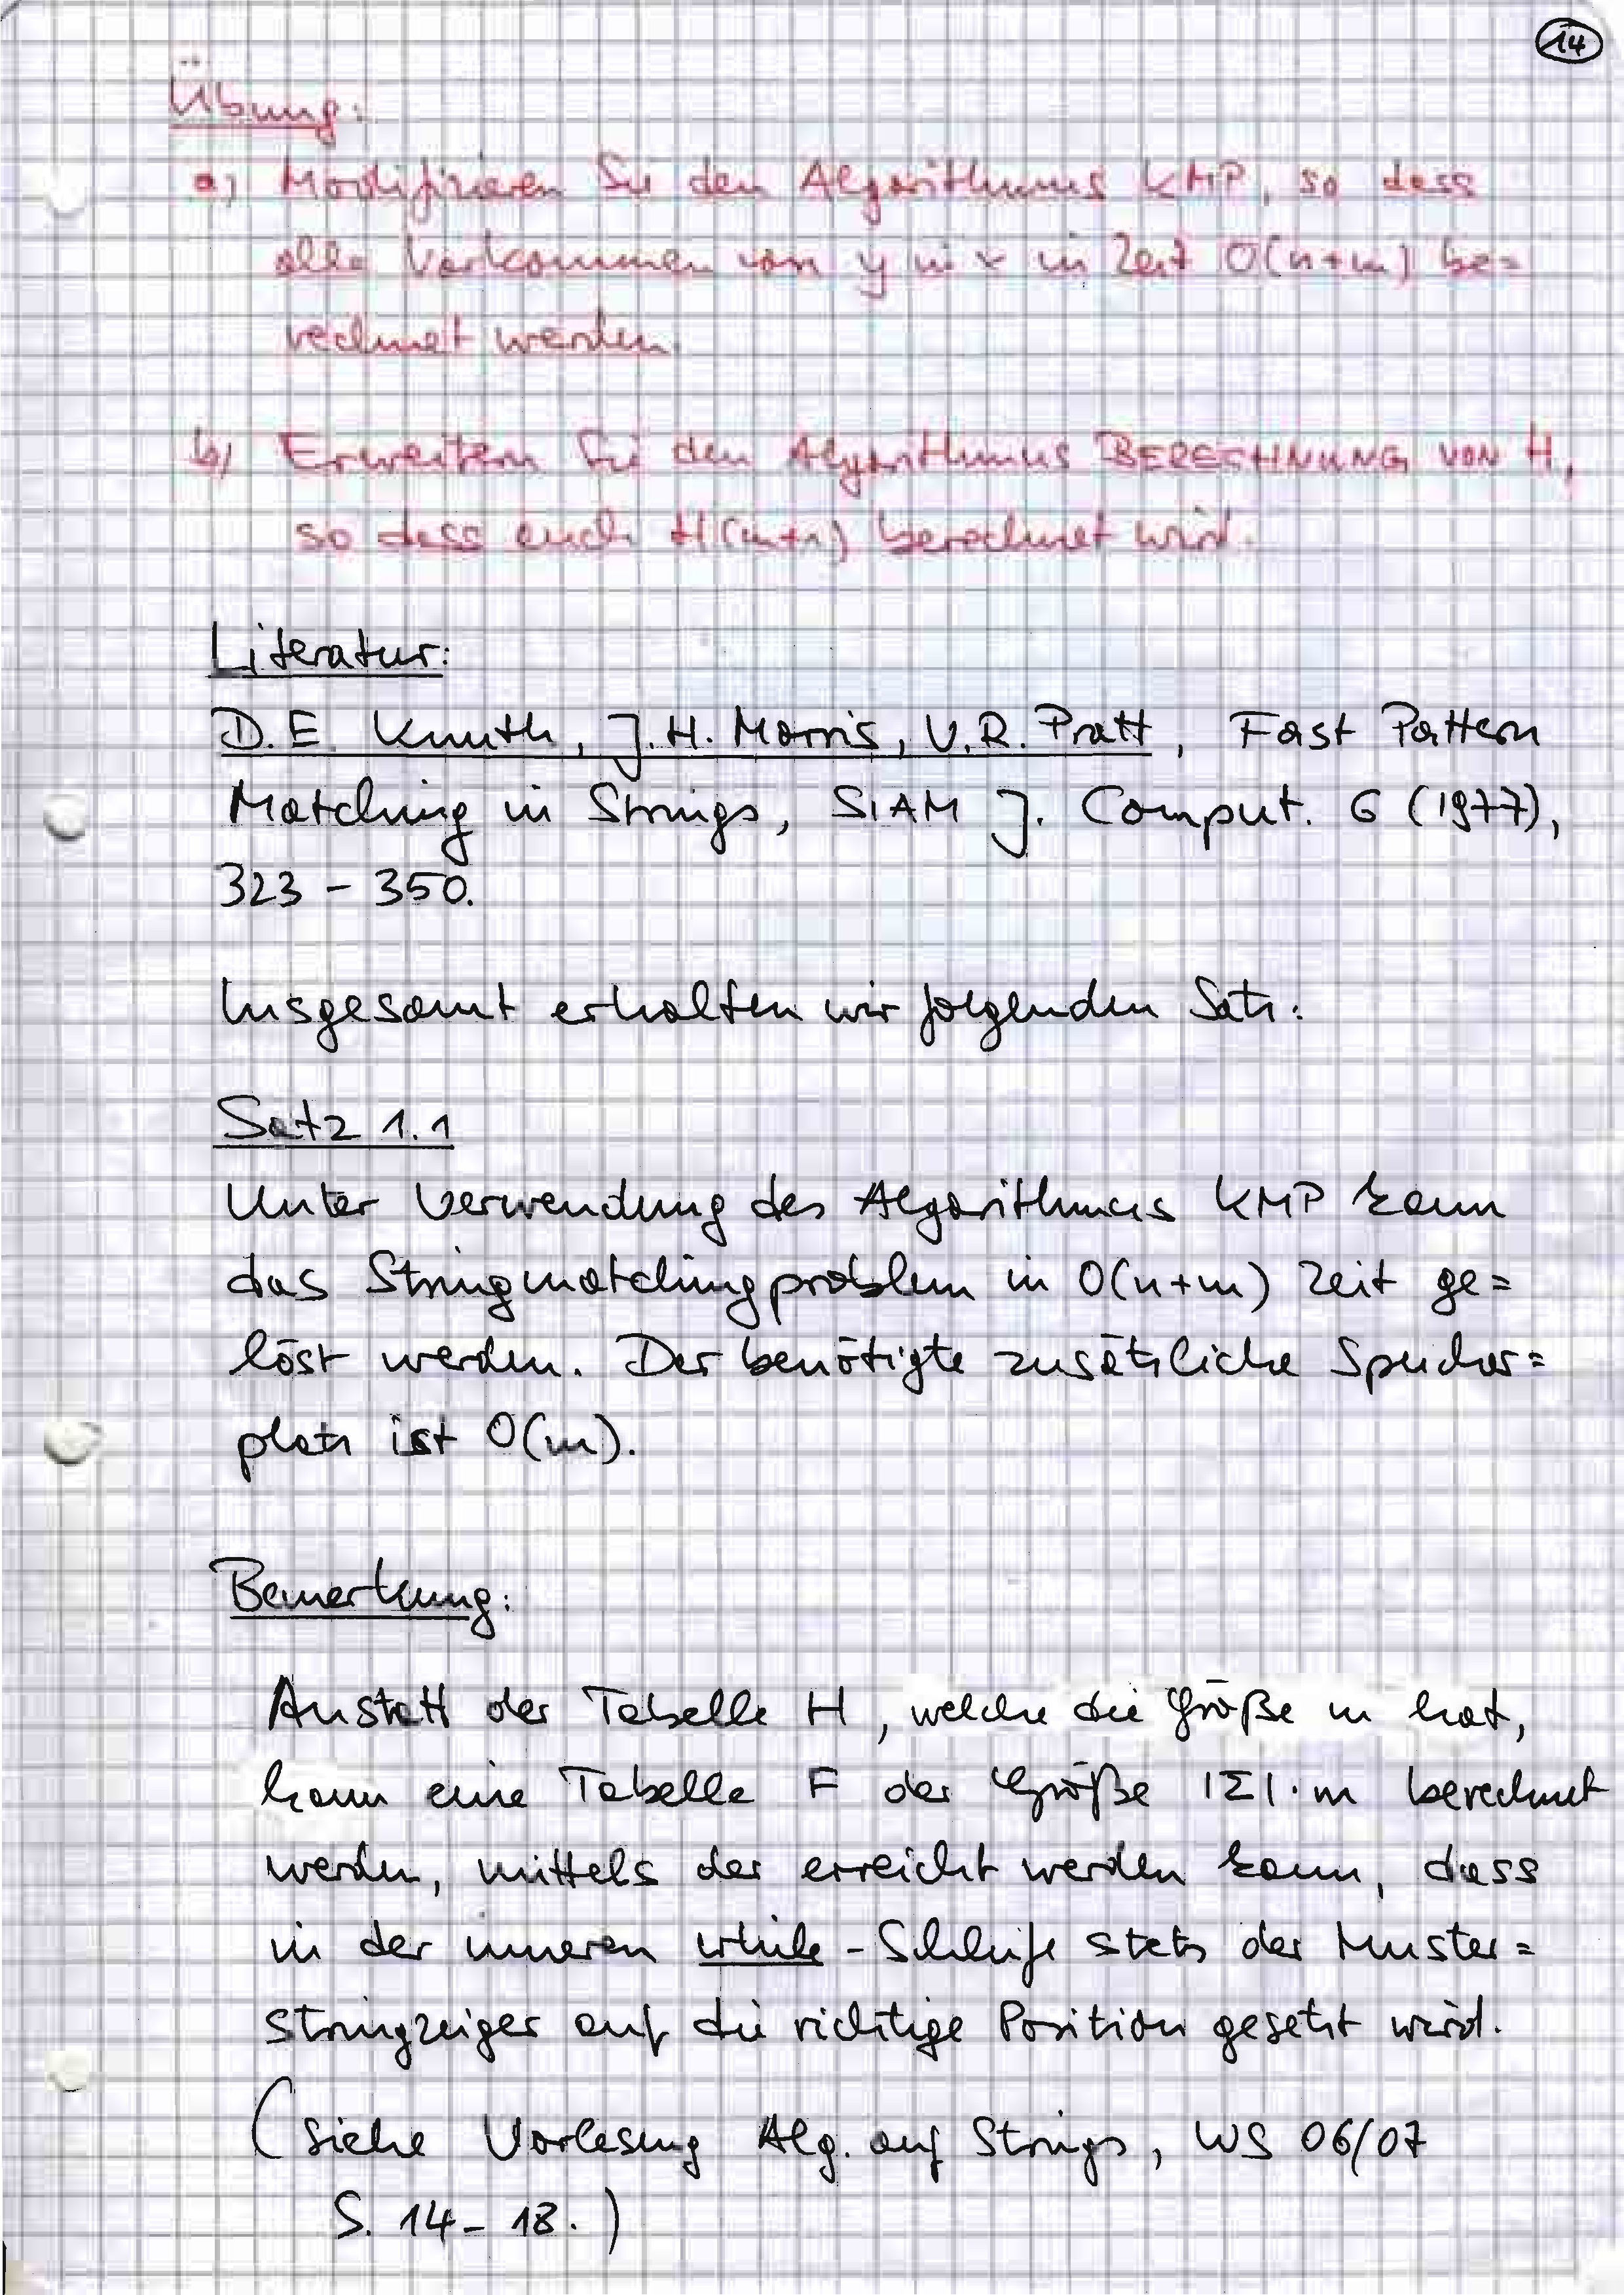 14
Übung:
a) Modifizieren Sie den Algorithmus KMP, so dass
alle Vorkommen von y in x in Zeit O(n+m) be=
rechnet werden.
b) Erweitern Sie den Algorithmus BERECHNUNG VON H,
so dass auch H(m+1) berechnet wird.
Literatur:
D.E. Knuth, J.H. Morris, V.R. Pratt, Fast Pattern
Matching in Strings, SIAM J. Comput. 6 (1977),
323 - 350.
Insgesamt erhalten wir folgenden Satz:
Satz 1.1
Unter Verwendung des Algorithmus KMP kann
das Stringmatchingproblem in O(n+m) Zeit ge=
löst werden. Der benötigte zusätzliche Speicher=
platz ist O(m).
Bemerkung:
Anstatt der Tabelle H, welche die Größe m hat,
kann eine Tabelle F der Größe |Σ|·m berechnet
werden, mittels der erreicht werden kann, dass
in der inneren while-Schleife stets der Muster=
stringzeiger auf die richtige Position gesetzt wird.
(siehe Vorlesung Alg. auf Strings, WS 06/07
S. 14 - 18.)